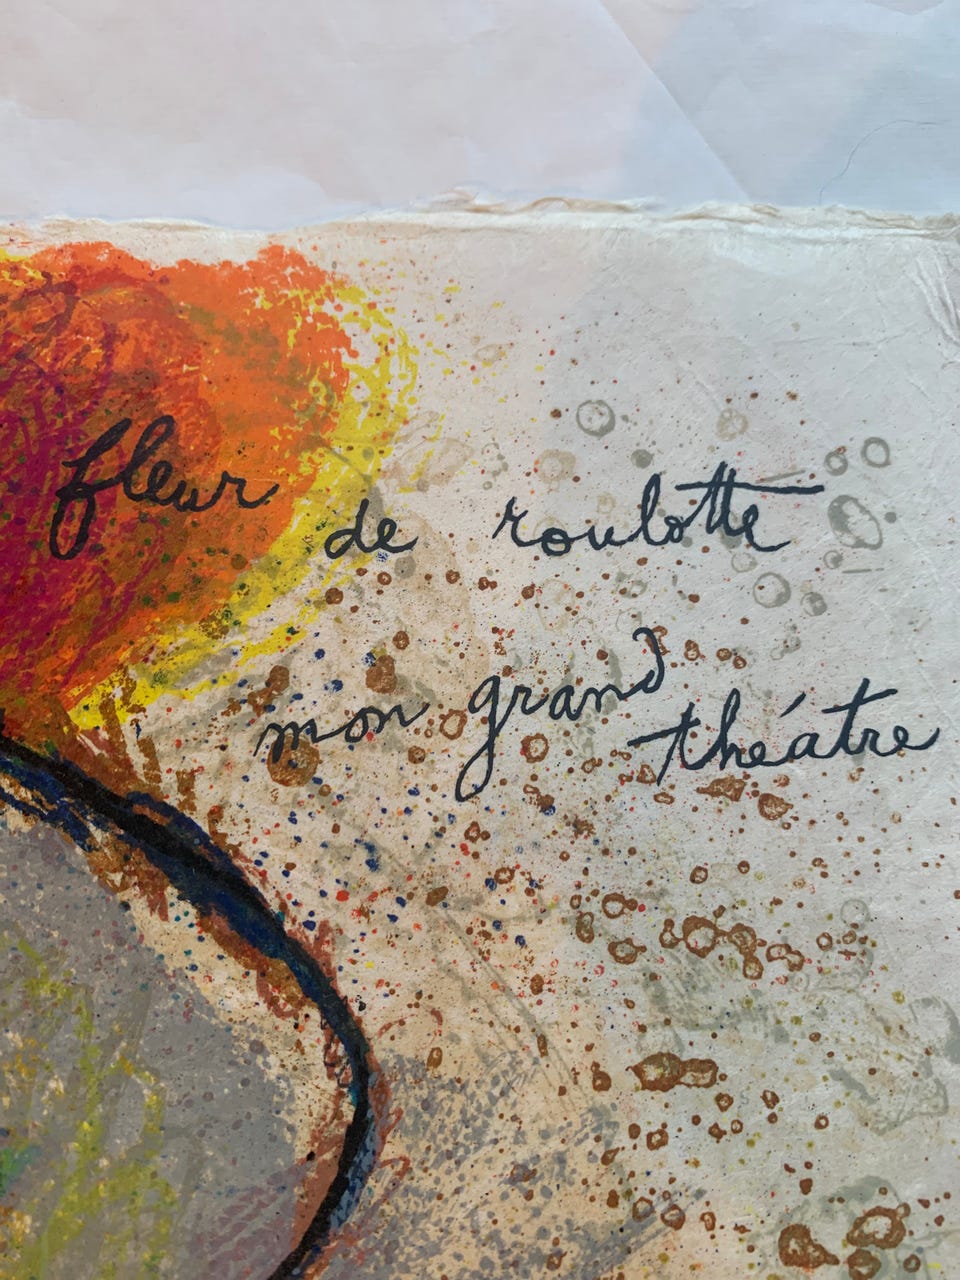 fleur de roulotte
mon grand théâtre